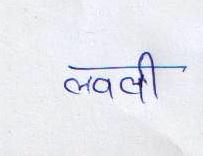 लवली